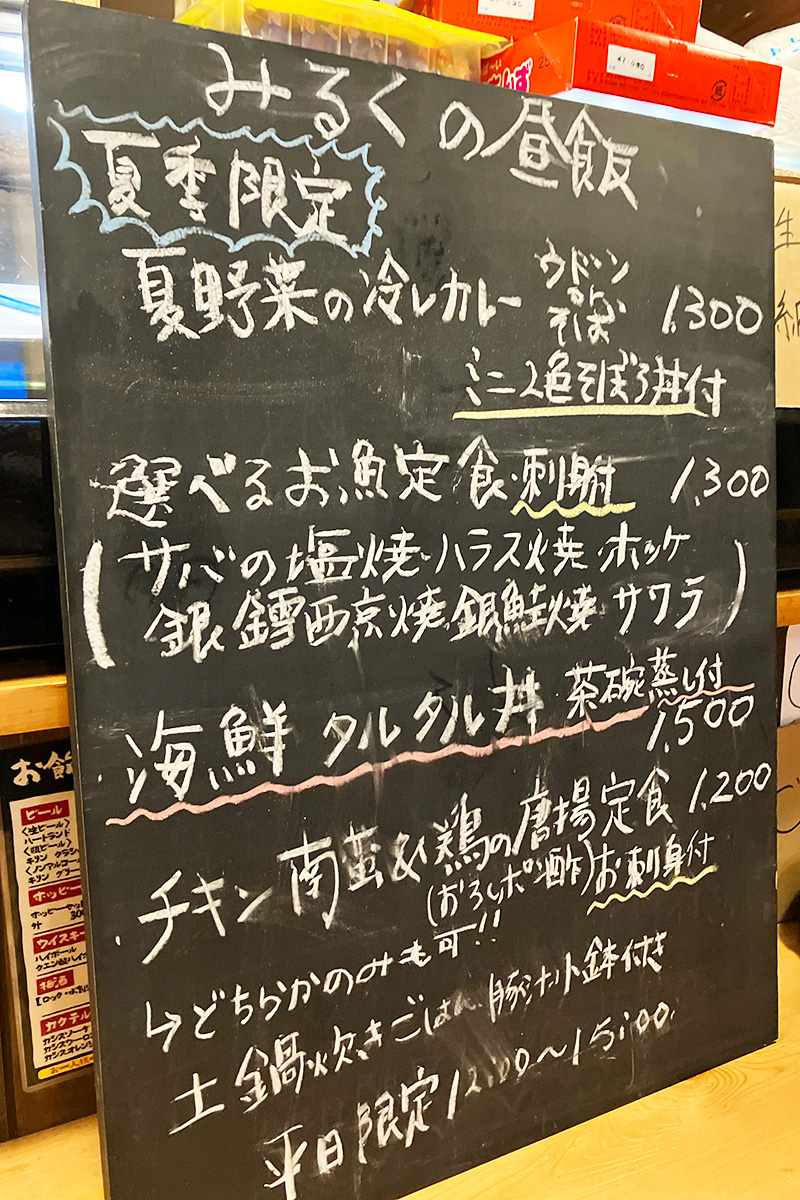 みるくの昼食
夏季限定
夏野菜の冷しカレー ウドン or そば 1,300
ミニ2色そぼろ丼付
選べるお魚定食・刺身付 1,300
(サバの塩焼・ハラス焼・ホッケ
銀鱈西京焼・銀鮭焼・サワラ)
・海鮮タルタル丼 茶碗蒸し付
1,500
・チキン南蛮&鶏の唐揚定食 1,200
(おろしポン酢) お刺身付
↳どちらかのみも可!!
土鍋炊きごはん、豚汁、小鉢付き
平日限定 12:00〜15:00
ビール
〈生ビール〉
ハートランド
ホッピー
ウイスキー
ハイボール
梅酒
カクテル